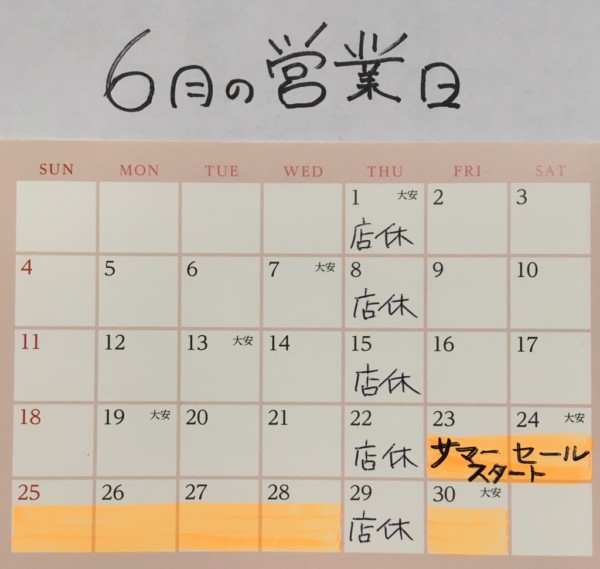 6月の営業日
SUN MON TUE WED THU FRI SAT
1 大安 2 3
店休
4 5 6 7 大安 8 9 10
店休
11 12 13 大安 14 15 16 17
店休
18 19 大安 20 21 22 23 24 大安
店休 サマーセール
スタート
25 26 27 28 29 30 大安
店休